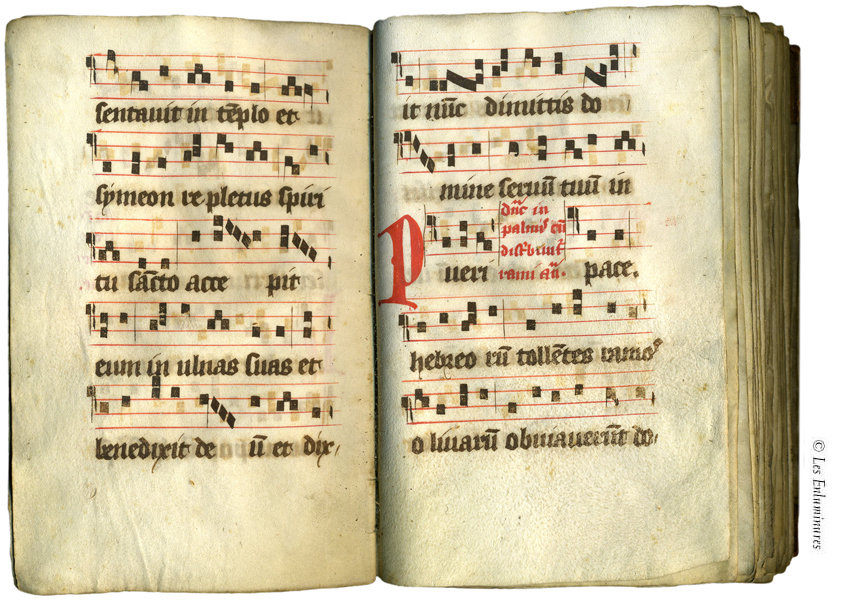 sentauit in tēplo et
symeon re pletus spiri
tu sācto acce pit
eum in ulnas suas et
benedixit de ū et dix,
it nūc dimittis do
mine seruū tuū in
dūc in
palmis cū
distbuūt
rami añ.
Pueri pace.
hebreo rū tollētes ramos
o liuarū obuiauerūt do,
© Les Enluminures